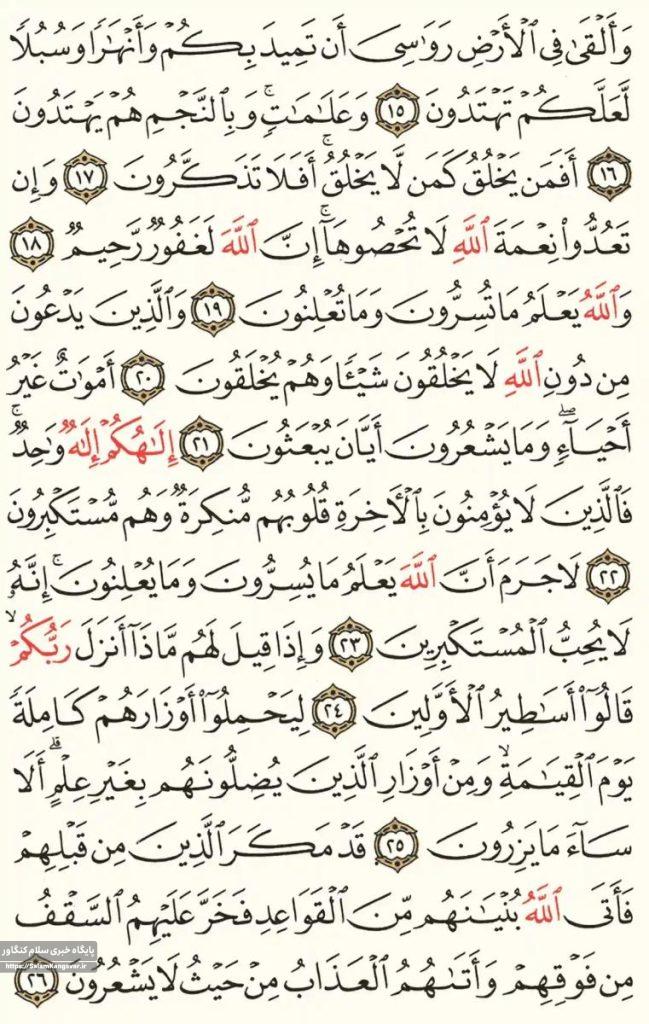 وَأَلْقَىٰ فِى ٱلْأَرْضِ رَوَٰسِىَ أَن تَمِيدَ بِكُمْ وَأَنْهَٰرًا وَسُبُلًا
لَّعَلَّكُمْ تَهْتَدُونَ ١٥ وَعَلَٰمَٰتٍۚ وَبِٱلنَّجْمِ هُمْ يَهْتَدُونَ
١٦ أَفَمَن يَخْلُقُ كَمَن لَّا يَخْلُقُۚ أَفَلَا تَذَكَّرُونَ ١٧ وَإِن
تَعُدُّوا۟ نِعْمَةَ ٱللَّهِ لَا تُحْصُوهَآۚ إِنَّ ٱللَّهَ لَغَفُورٌ رَّحِيمٌ ١٨
وَٱللَّهُ يَعْلَمُ مَا تُسِرُّونَ وَمَا تُعْلِنُونَ ١٩ وَٱلَّذِينَ يَدْعُونَ
مِن دُونِ ٱللَّهِ لَا يَخْلُقُونَ شَيْـًٔا وَهُمْ يُخْلَقُونَ ٢٠ أَمْوَٰتٌ غَيْرُ
أَحْيَآءٍۖ وَمَا يَشْعُرُونَ أَيَّانَ يُبْعَثُونَ ٢١ إِلَٰهُكُمْ إِلَٰهٌ وَٰحِدٌۚ
فَٱلَّذِينَ لَا يُؤْمِنُونَ بِٱلْـَٔاخِرَةِ قُلُوبُهُم مُّنكِرَةٌ وَهُم مُّسْتَكْبِرُونَ
٢٢ لَا جَرَمَ أَنَّ ٱللَّهَ يَعْلَمُ مَا يُسِرُّونَ وَمَا يُعْلِنُونَۚ إِنَّهُۥ
لَا يُحِبُّ ٱلْمُسْتَكْبِرِينَ ٢٣ وَإِذَا قِيلَ لَهُم مَّاذَآ أَنزَلَ رَبُّكُمْۙ
قَالُوٓا۟ أَسَٰطِيرُ ٱلْأَوَّلِينَ ٢٤ لِيَحْمِلُوٓا۟ أَوْزَارَهُمْ كَامِلَةً
يَوْمَ ٱلْقِيَٰمَةِۙ وَمِنْ أَوْزَارِ ٱلَّذِينَ يُضِلُّونَهُم بِغَيْرِ عِلْمٍۗ أَلَا
سَآءَ مَا يَزِرُونَ ٢٥ قَدْ مَكَرَ ٱلَّذِينَ مِن قَبْلِهِمْ
فَأَتَى ٱللَّهُ بُنْيَٰنَهُم مِّنَ ٱلْقَوَاعِدِ فَخَرَّ عَلَيْهِمُ ٱلسَّقْفُ
مِن فَوْقِهِمْ وَأَتَىٰهُمُ ٱلْعَذَابُ مِنْ حَيْثُ لَا يَشْعُرُونَ ٢٦
پایگاه خبری سلام کنگاور
https://SalamKangavar.ir